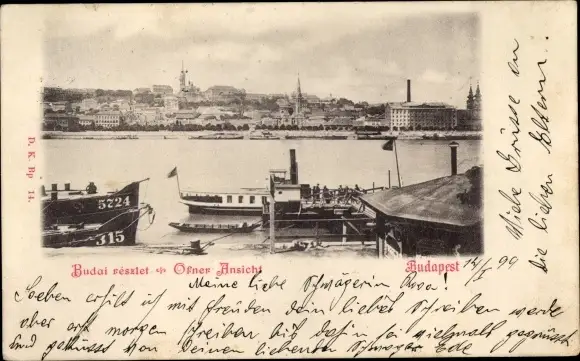 D. K. Bp 14.
5724
315
Budai részlet Ofner Ansicht
Budapest
14/I 99
Meine liebe Schwägerin Rosa!
Soeben erhielt ich mit Freuden dein liebes Schreiben werde
aber erst morgen schreiben bis dahin sei vielmals gegrüsst
und geküsst von Deinem liebenden Schwager
Viele Grüsse an
die lieben Eltern.